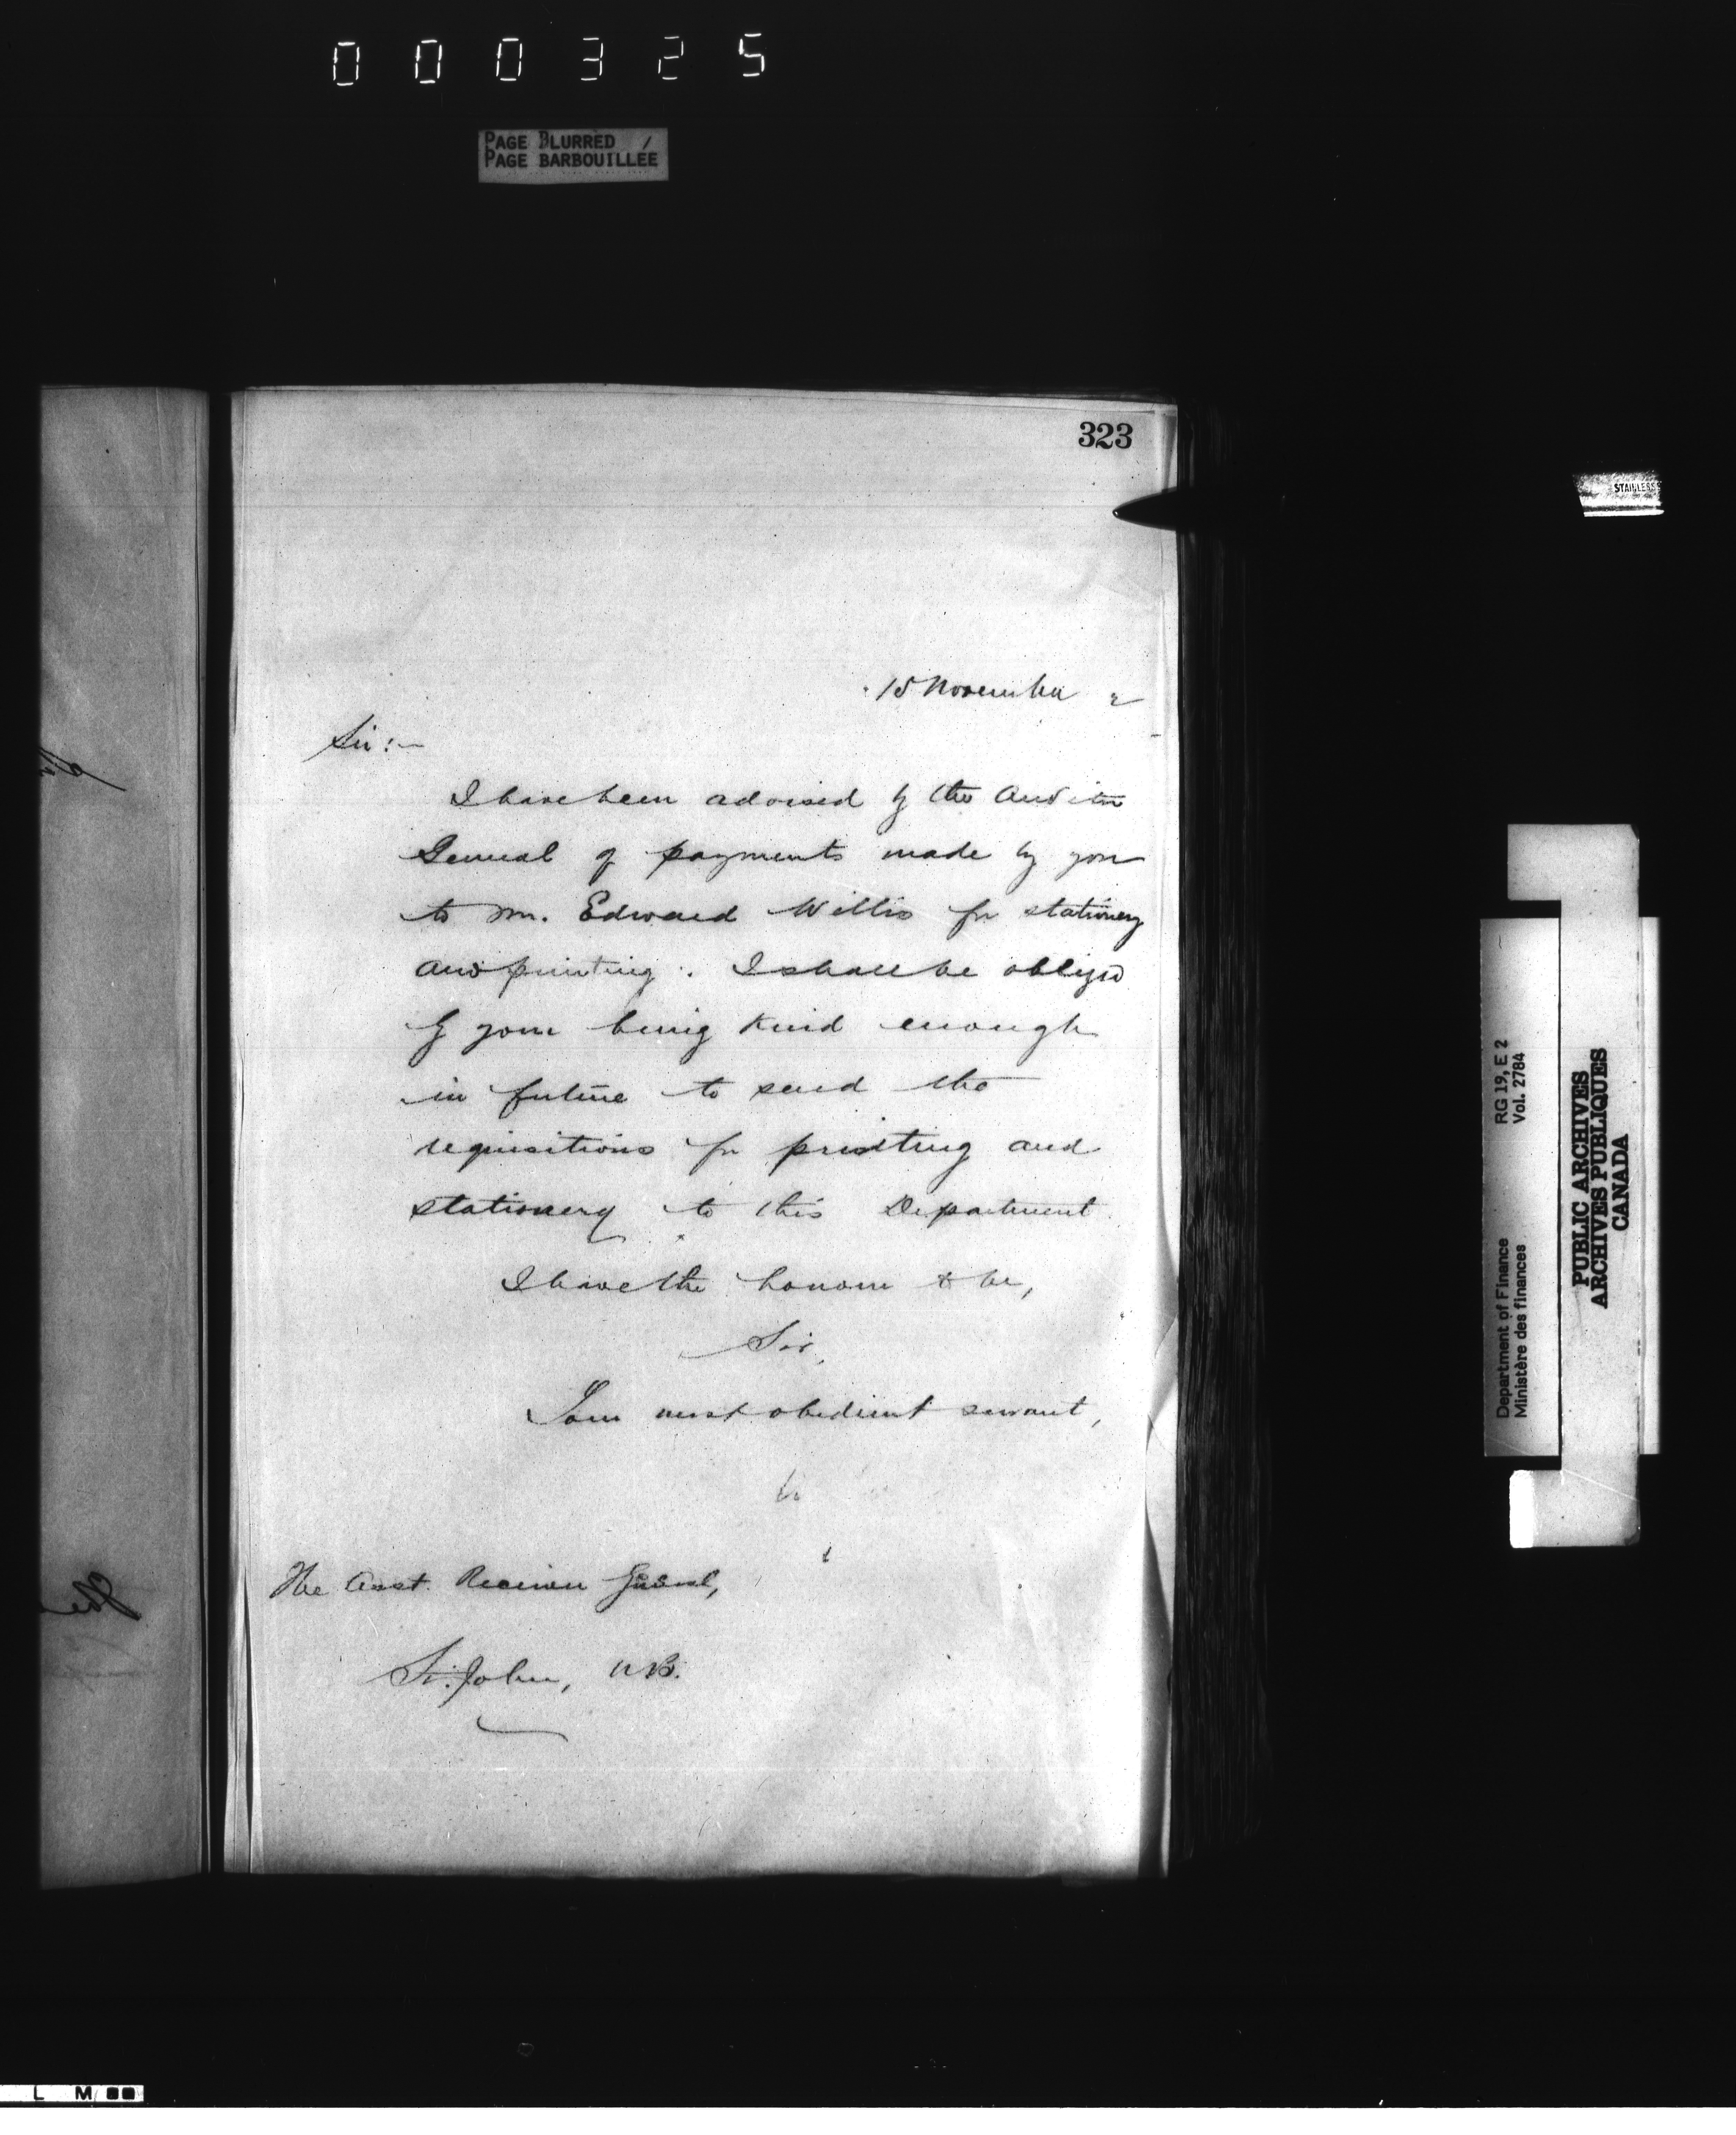 000325
PAGE BLURRED /
PAGE BARBOUILLÉE
323
15 November 2
Sir:—
I have been advised by the Auditor
General of payments made by you
to Mr. Edward Willis for stationery
and printing. I shall be obliged
by your being kind enough
in future to send the
requisitions for printing and
stationery to this Department
I have the honour to be,
Sir,
Your most obedient servant,
The Asst. Receiver General,
St. John, N.B.
STAINLESS
RG 19, E 2
Vol. 2784
Department of Finance
Ministère des finances
PUBLIC ARCHIVES
ARCHIVES PUBLIQUES
CANADA
L M